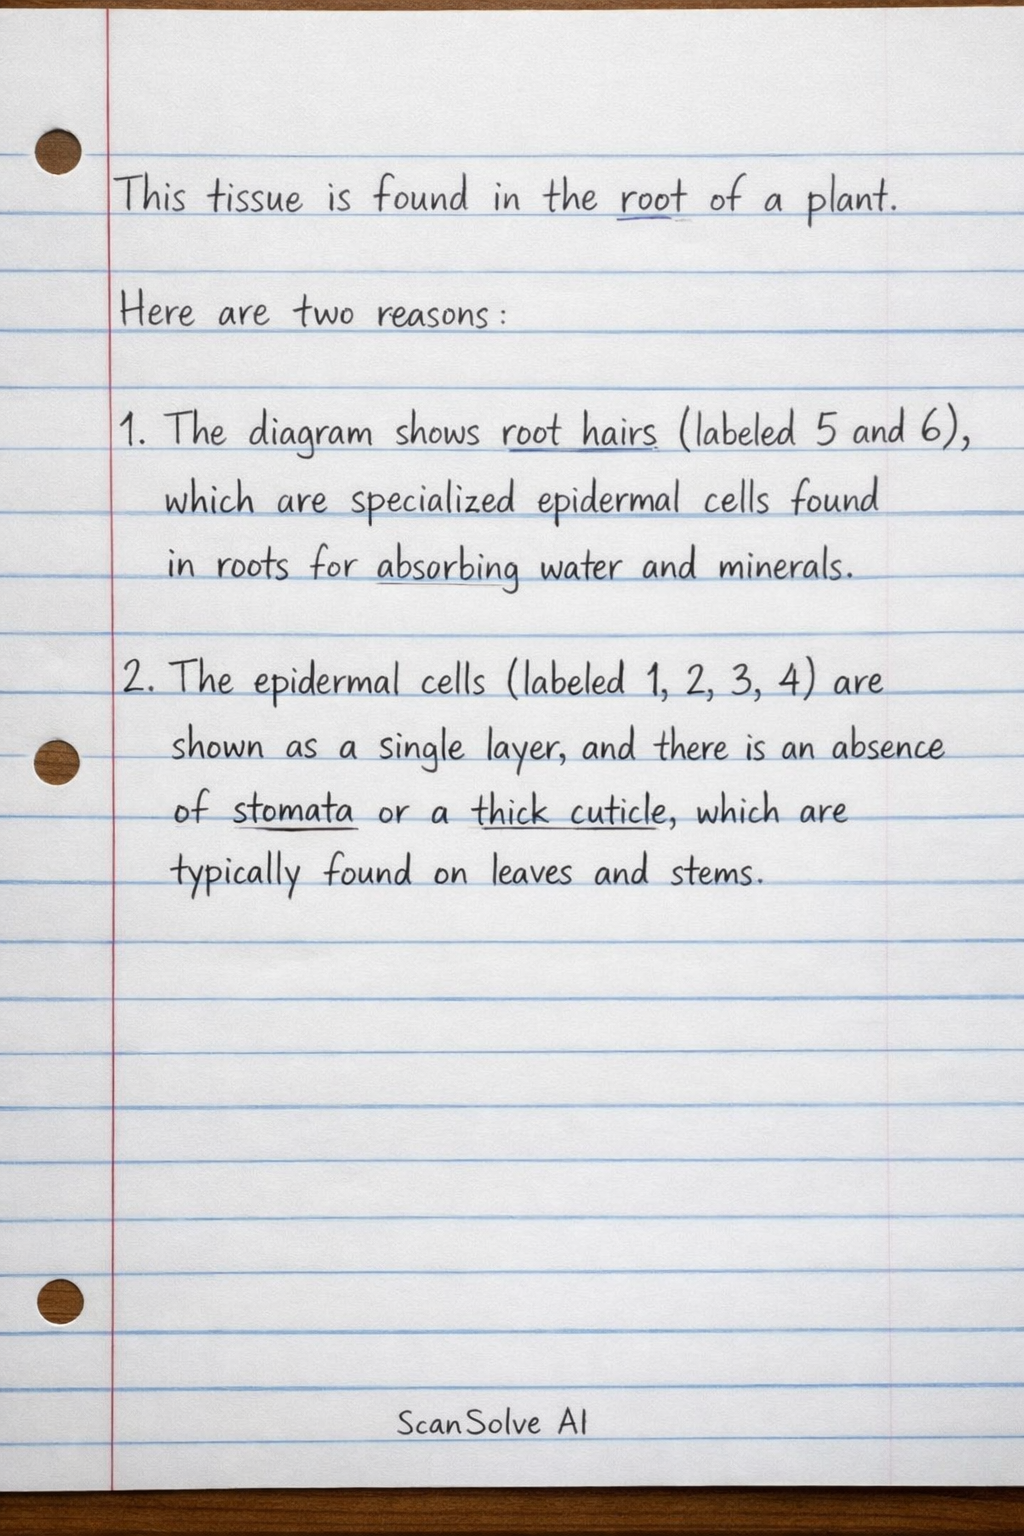 This tissue is found in the root of a plant.
Here are two reasons:
1. The diagram shows root hairs (labeled 5 and 6),
which are specialized epidermal cells found
in roots for absorbing water and minerals.
2. The epidermal cells (labeled 1, 2, 3, 4) are
shown as a single layer, and there is an absence
of stomata or a thick cuticle, which are
typically found on leaves and stems.
ScanSolve AI